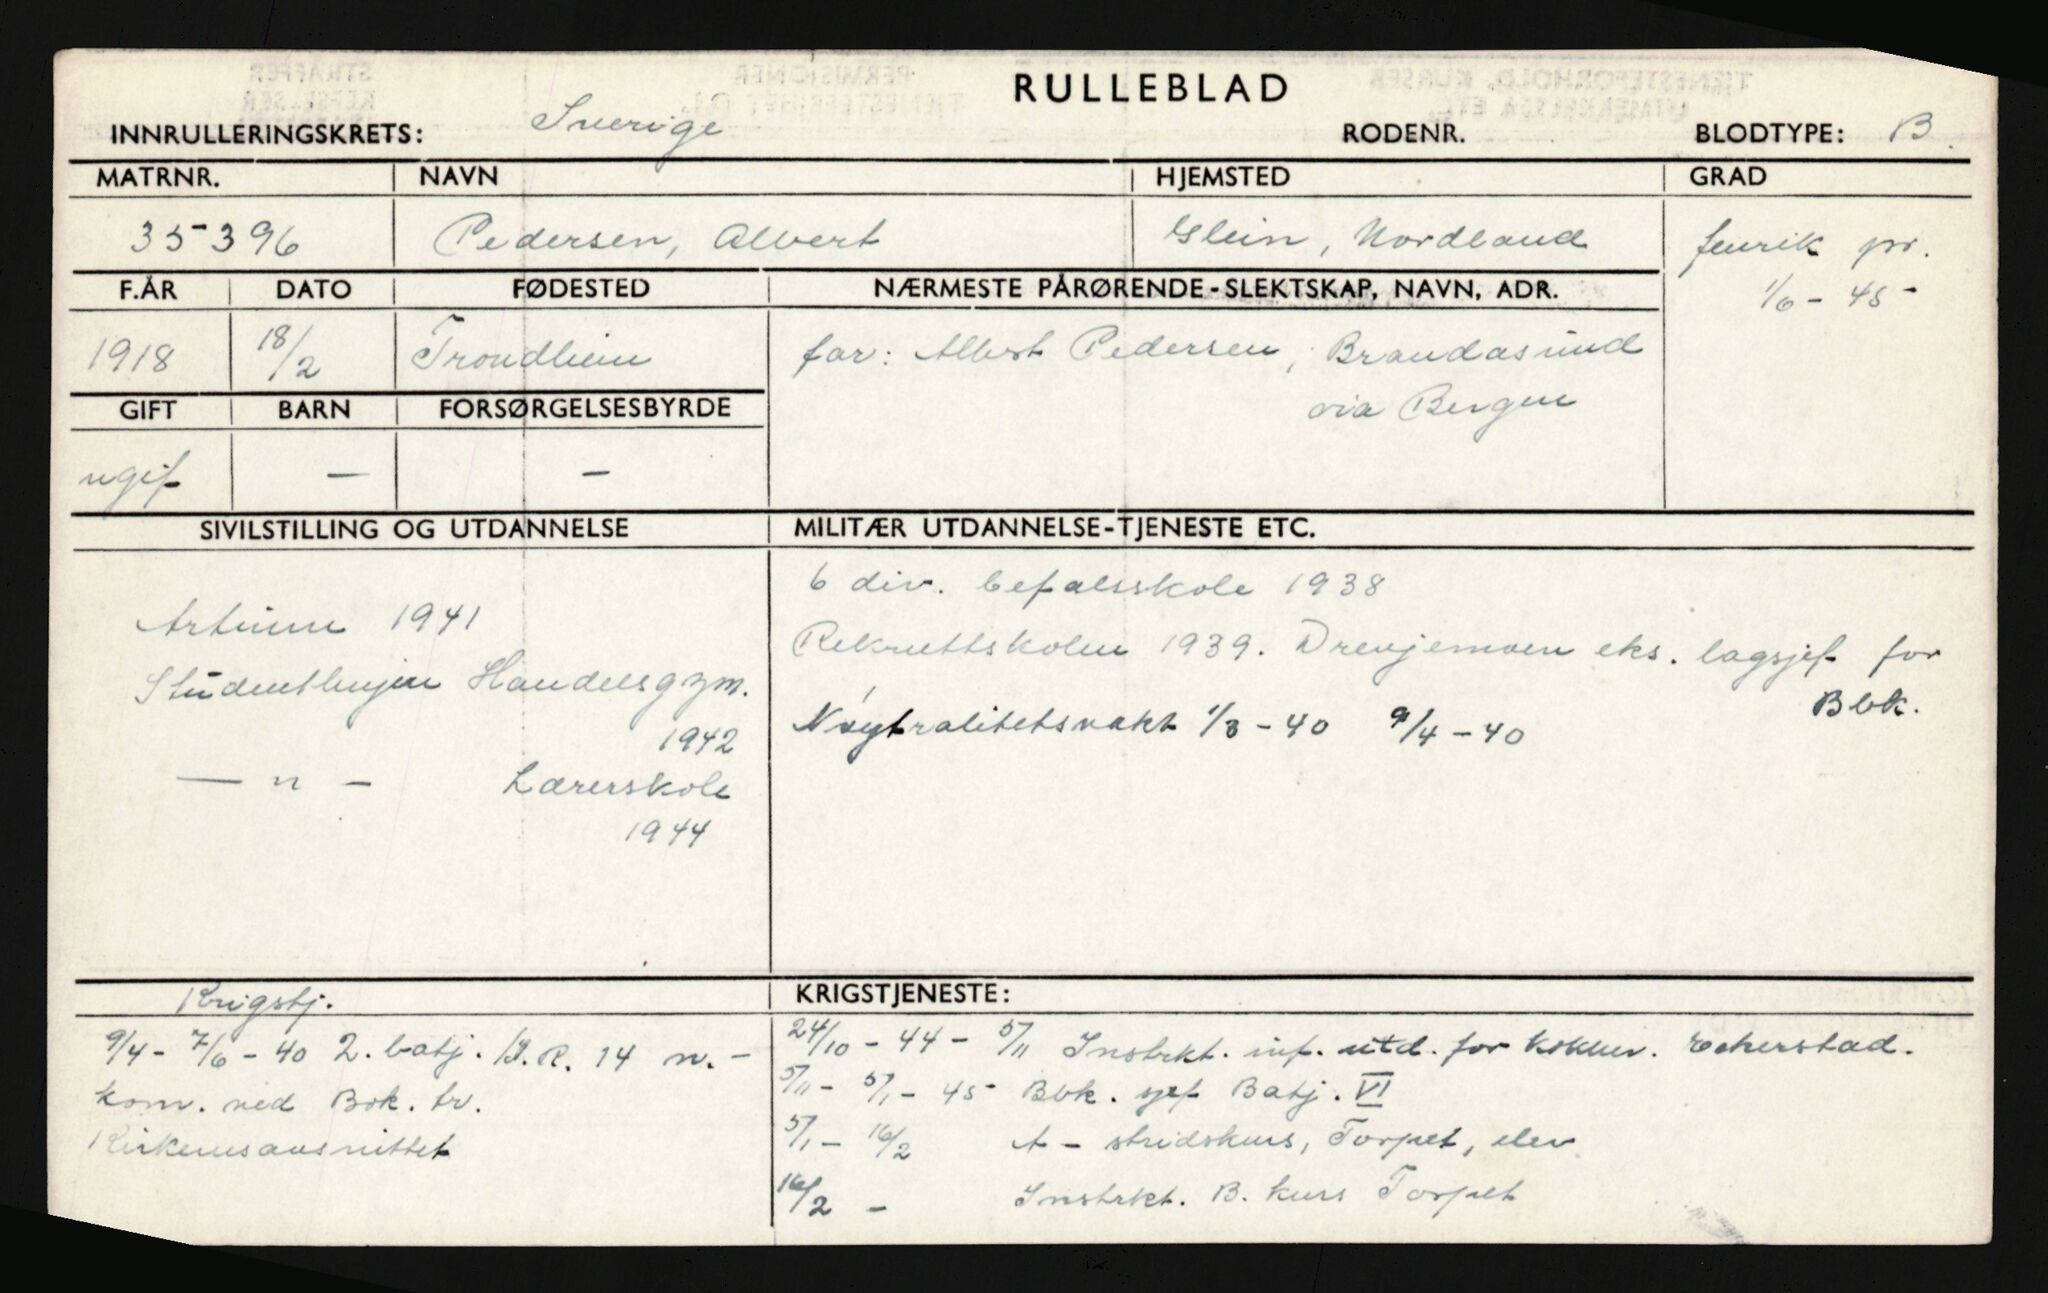 RULLEBLAD
INNRULLERINGSKRETS: Sverige RODENR. BLODTYPE: B
MATRNR. NAVN HJEMSTED GRAD
35396 Pedersen, Albert Glein, Nordland fenrik pr.
1/6 - 45
F.ÅR DATO FØDESTED NÆRMESTE PÅRØRENDE-SLEKTSKAP, NAVN, ADR.
1918 18/2 Trondheim far: Albert Pedersen, Brandasund
via Bergen
GIFT BARN FORSØRGELSESBYRDE
ugif — —
SIVILSTILLING OG UTDANNELSE
Artium 1941
Studentlinjen Handelsgym.
1942
— " — Lærerskole
1944
MILITÆR UTDANNELSE-TJENESTE ETC.
6 div. befalsskole 1938
Rekruttskolen 1939. Drevjemoen eks. lagsjef for
Bbk.
Nøytralitetsvakt 1/3 - 40 9/4 - 40
Krigstj.
9/4 - 7/6 - 40 2. batj. I.R. 14 n. -
kom. ved Bok. tr.
Kirkenesavsnittet
KRIGSTJENESTE:
24/10 - 44 - 5/11 Instrkt. inf. utd. for Eckerstad.
5/11 - 5/1 - 45 Bbk. sjef Batj. VI
5/1 - 16/2 A - stridskurs, Torpet, elev
16/2 - Instrkt. B. kurs Torpet